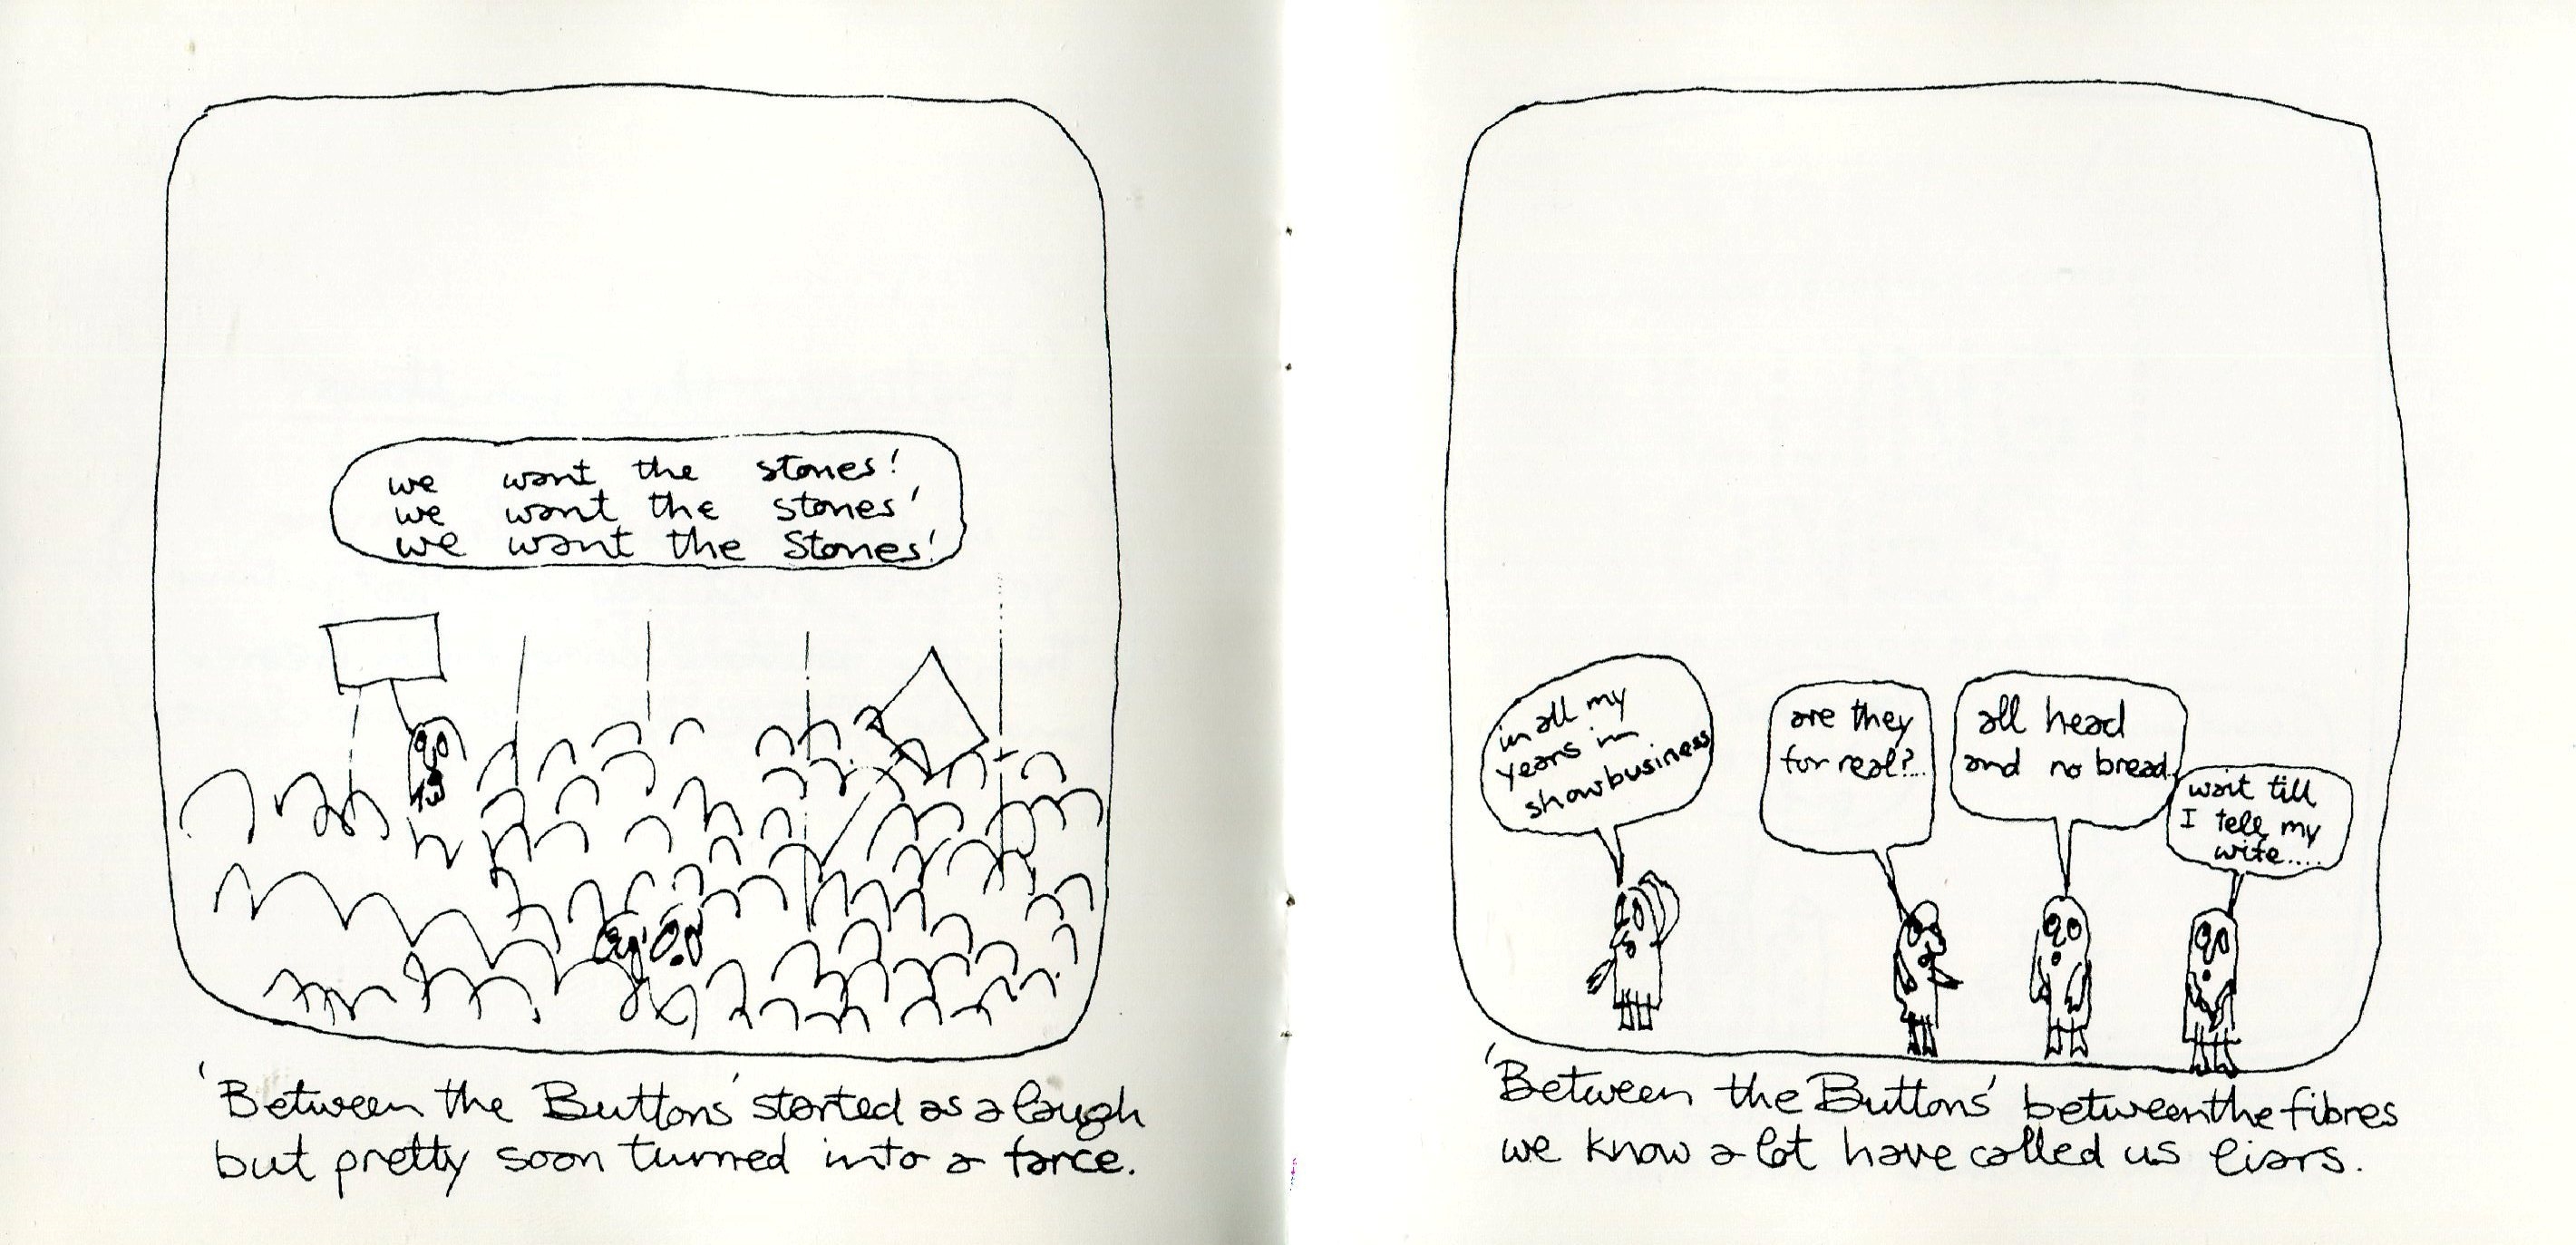 we want the stones!
we want the stones'
we want the Stones!
'Between the Buttons' started as a laugh
but pretty soon turned into a farce.
in all my
years in
showbusiness
are they
for real?...
all head
and no bread..
wait till
I tell my
wife.....
'Between the Buttons' between the fibres
we know a lot have called us liars.